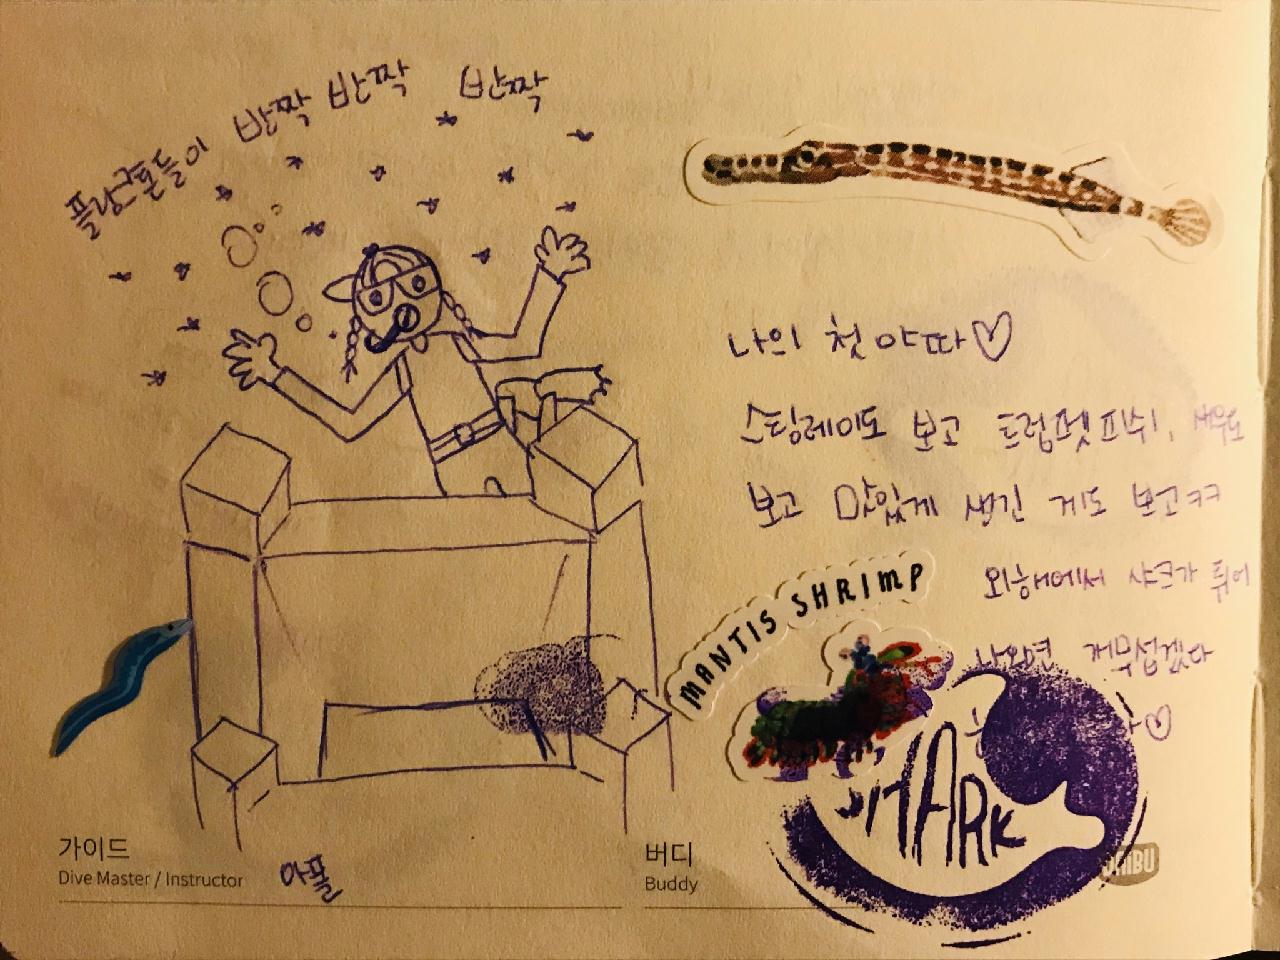 플랑크톤들이 반짝 반짝 반짝
나의 첫 야따♡
스팅레이도 보고 트럼펫피쉬, 새우도
보고 맛있게 생긴 게도 보고ㅋㅋ
외해에서 샤크가 튀어
나오면 개무섭겠다
♡
MANTIS SHRIMP
SHARK
가이드
Dive Master / Instructor
아폴
버디
Buddy